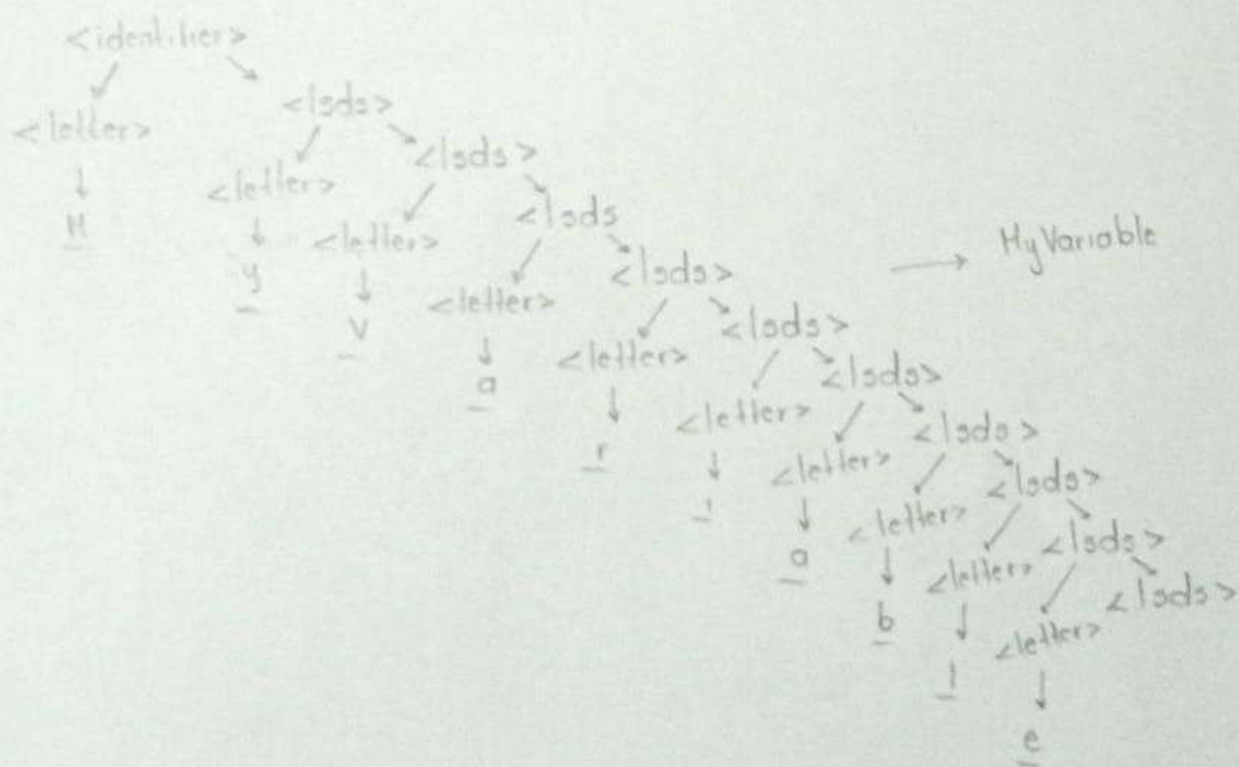 <identifier>
<letter> <lsds>
M <letter> <lsds>
y <letter> <lsds
V <letter> <lsds>
a <letter> <lsds>
r <letter> <lsds>
i <letter> <lsds>
a <letter> <lsds>
b <letter> <lsds>
l <letter> <lsds>
e
MyVariable